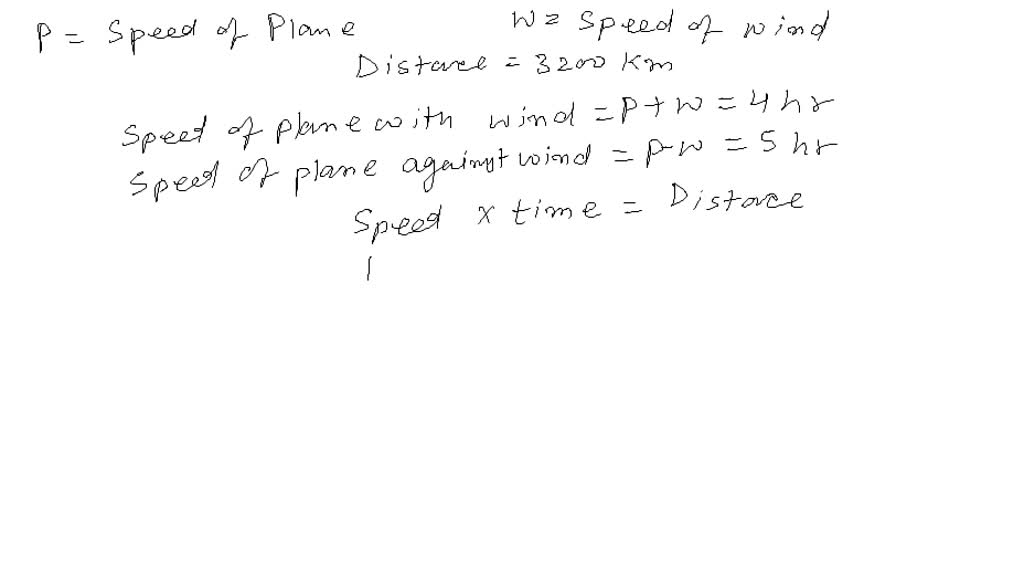 P = Speed of Plane W = Speed of wind
Distance = 3200 Km
Speed of plane with wind = P + W = 4 hr
Speed of plane against wind = P - W = 5 hr
Speed x time = Distance